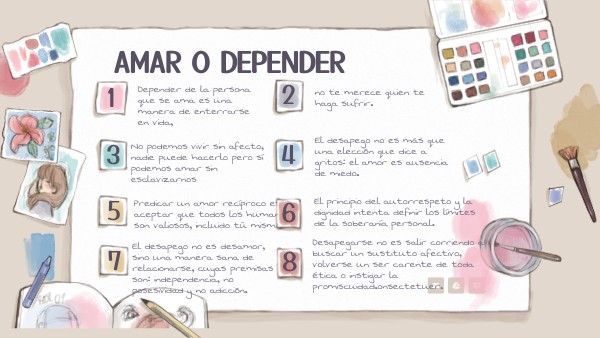 AMAR O DEPENDER
1
Depender de la persona
que se ama es una
manera de enterrarse
en vida,
2
no te merece quien te
haga sufrir.
3
No podemos vivir sin afecto,
nadie puede hacerlo pero sí
podemos amar sin
esclavizarnos
4
El desapego no es más que
una elección que dice a
gritos: el amor es ausencia
de miedo.
5
Predicar un amor recíproco es
aceptar que todos los human
son valiosos, incluido tú mism
6
El principio del autorrespeto y la
dignidad intenta definir los límites
de la soberanía personal.
7
El desapego no es desamor,
sino una manera sana de
relacionarse, cuyas premisas
son: independencia, no
posesividad y no adicción.
8
Desapegarse no es salir corriendo a
buscar un sustituto afectivo,
volverse un ser carente de toda
ética o instigar la
promiscuidad.onsectetuer.